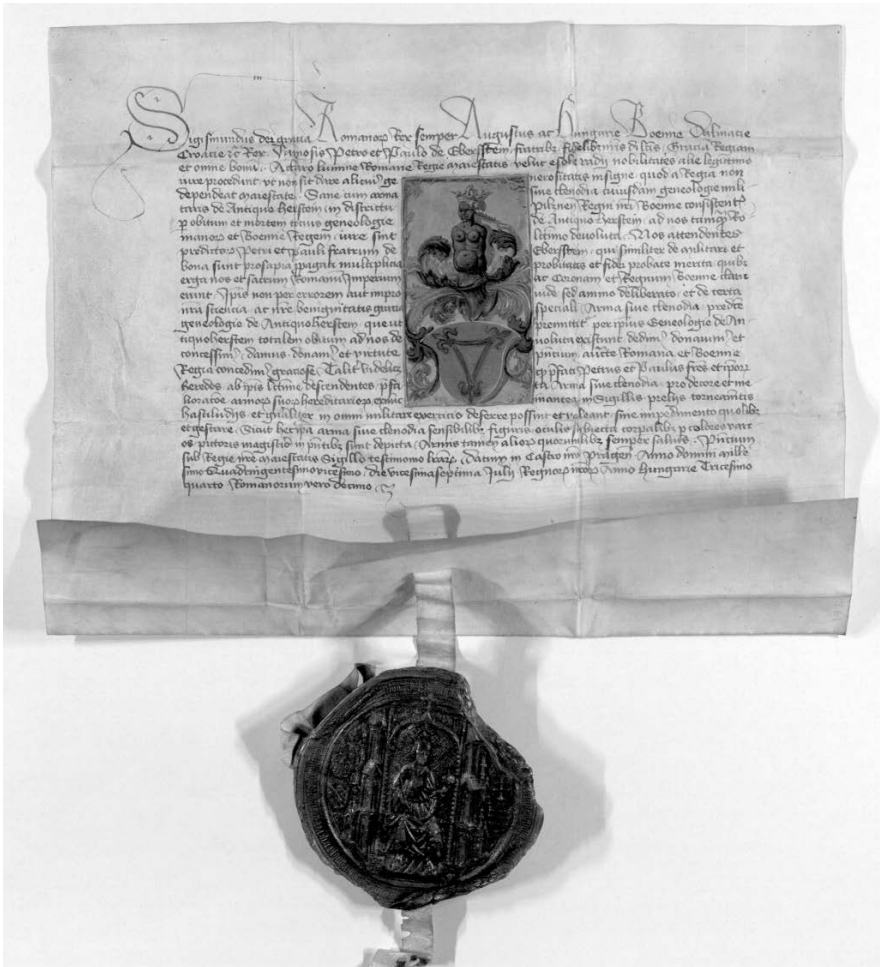 Sigismundus dei gracia Romanorum Rex semper Augustus ac Hungarie Boemie Dalmacie
Croacie etc Rex. Famosis Petro et Paulo de Eberssttem fratribus fidelibus nostris dilectis Graciam Regiam
et omne bonum. A claro lumine Romane Regie maiestatis velut e sole radii nobilitates alie legittimo
iure procedunt, ut non sit dare alicuius generositatis insigne quod a Regia non
dependeat maiestate. Sane cum arma sive clenodia cuiusdam geneologie militaris
de Antiquo herstem in districtu Pilznen Regni nostri Boemie consistentis
per obitum et mortem tocius geneologie de Antiquo herstem ad nos tamquam
Romanorum et Boemie Regem, iure sint legitimo devoluta. Nos attendentes
predictorum Petri et Pauli fratrum de Eberssttem, qui similiter de militari et
bona sunt prosapia propagati multiplicia probitatis et fidei probate merita, quibus
erga nos et sacrum Romanum Imperium ac Coronam et Regnum Boemie claruerunt.
Ipsis non per errorem aut improvide sed animo deliberato, et de certa
nostra sciencia, ac nostre benignitatis gratia speciali, Arma sive clenodia predicte
geneologie de Antiquoherstem, que ut premittitur per prius Geneologie de Antiquoherstem
totalem obitum ad nos devoluta existunt, dedimus, donavimus et
concessimus, damus, donamus et virtute presencium auctoritate Romana et Boemie
Regia concedimus graciose. Taliter videlicet quod prefati Petrus et Paulus fratres et ipsorum
heredes ab ipsis legitime descendentes, prefata Arma sive clenodia, pro decore et
memorea in Sigillis, prelus, torneamentis
hastiludiis, et qualiter in omni militari exercicio deferre possint et valeant, sine impedimento quolibet
et gestare. Sicut hec ipsa arma sive clenodia sensibilibus figuris, oculis subiecta corporalibus per colores
os pictoris magisterio in presentibus sunt depicta. Armis tamen aliorum quorumlibet semper salvis. Presentium
sub Regie nostre maiestatis Sigillo testimonio literarum. Datum in Castro nostro Pragen. Anno domini mille
simo Quadringentesimovicesimo, die vicesimaseptima Julii Regnorum nostrorum Anno Hungarie Tricesimo
quarto Romanorum vero decimo.